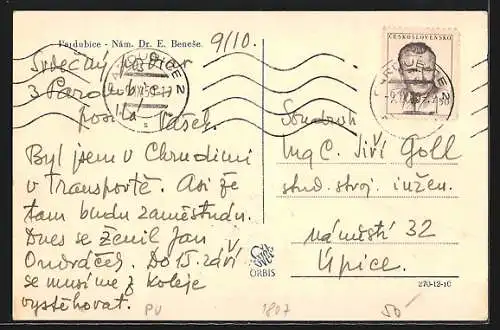 Pardubice - Nám. Dr. E. Beneše.
9/10.
Srdečný pozdrav
z Pardubic
posílá Vašek.
Byl jsem v Chrudimi
v Transportě. Asi že
tam budu zaměstnán.
Dnes se ženil Jan
Ondráček. Do 15. září
se musíme z koleje
vystěhovat.
ČESKOSLOVENSKO
PARDUBICE 2
PARDUBICE 2
Soudruh
Ing C. Jiří Goll
stud. stroj. inžen.
náměstí 32
Úpice.
ORBIS
270-12-1C
PU
1807
50-